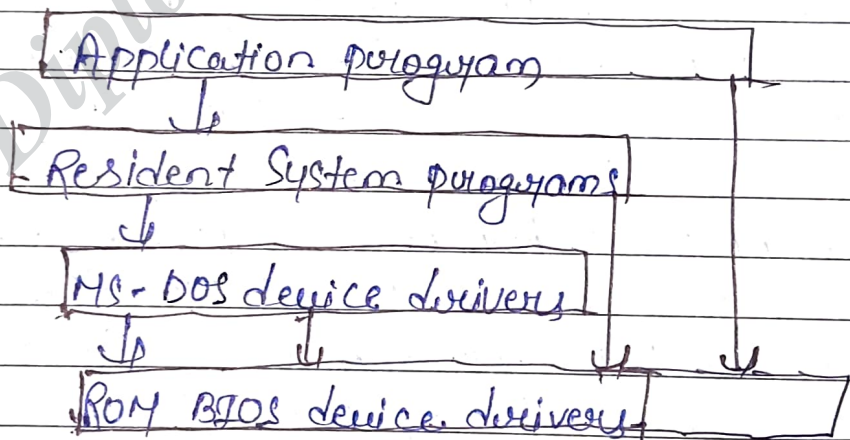 Application program
Resident System programs
MS-DOS device drivers
ROM BIOS device drivers